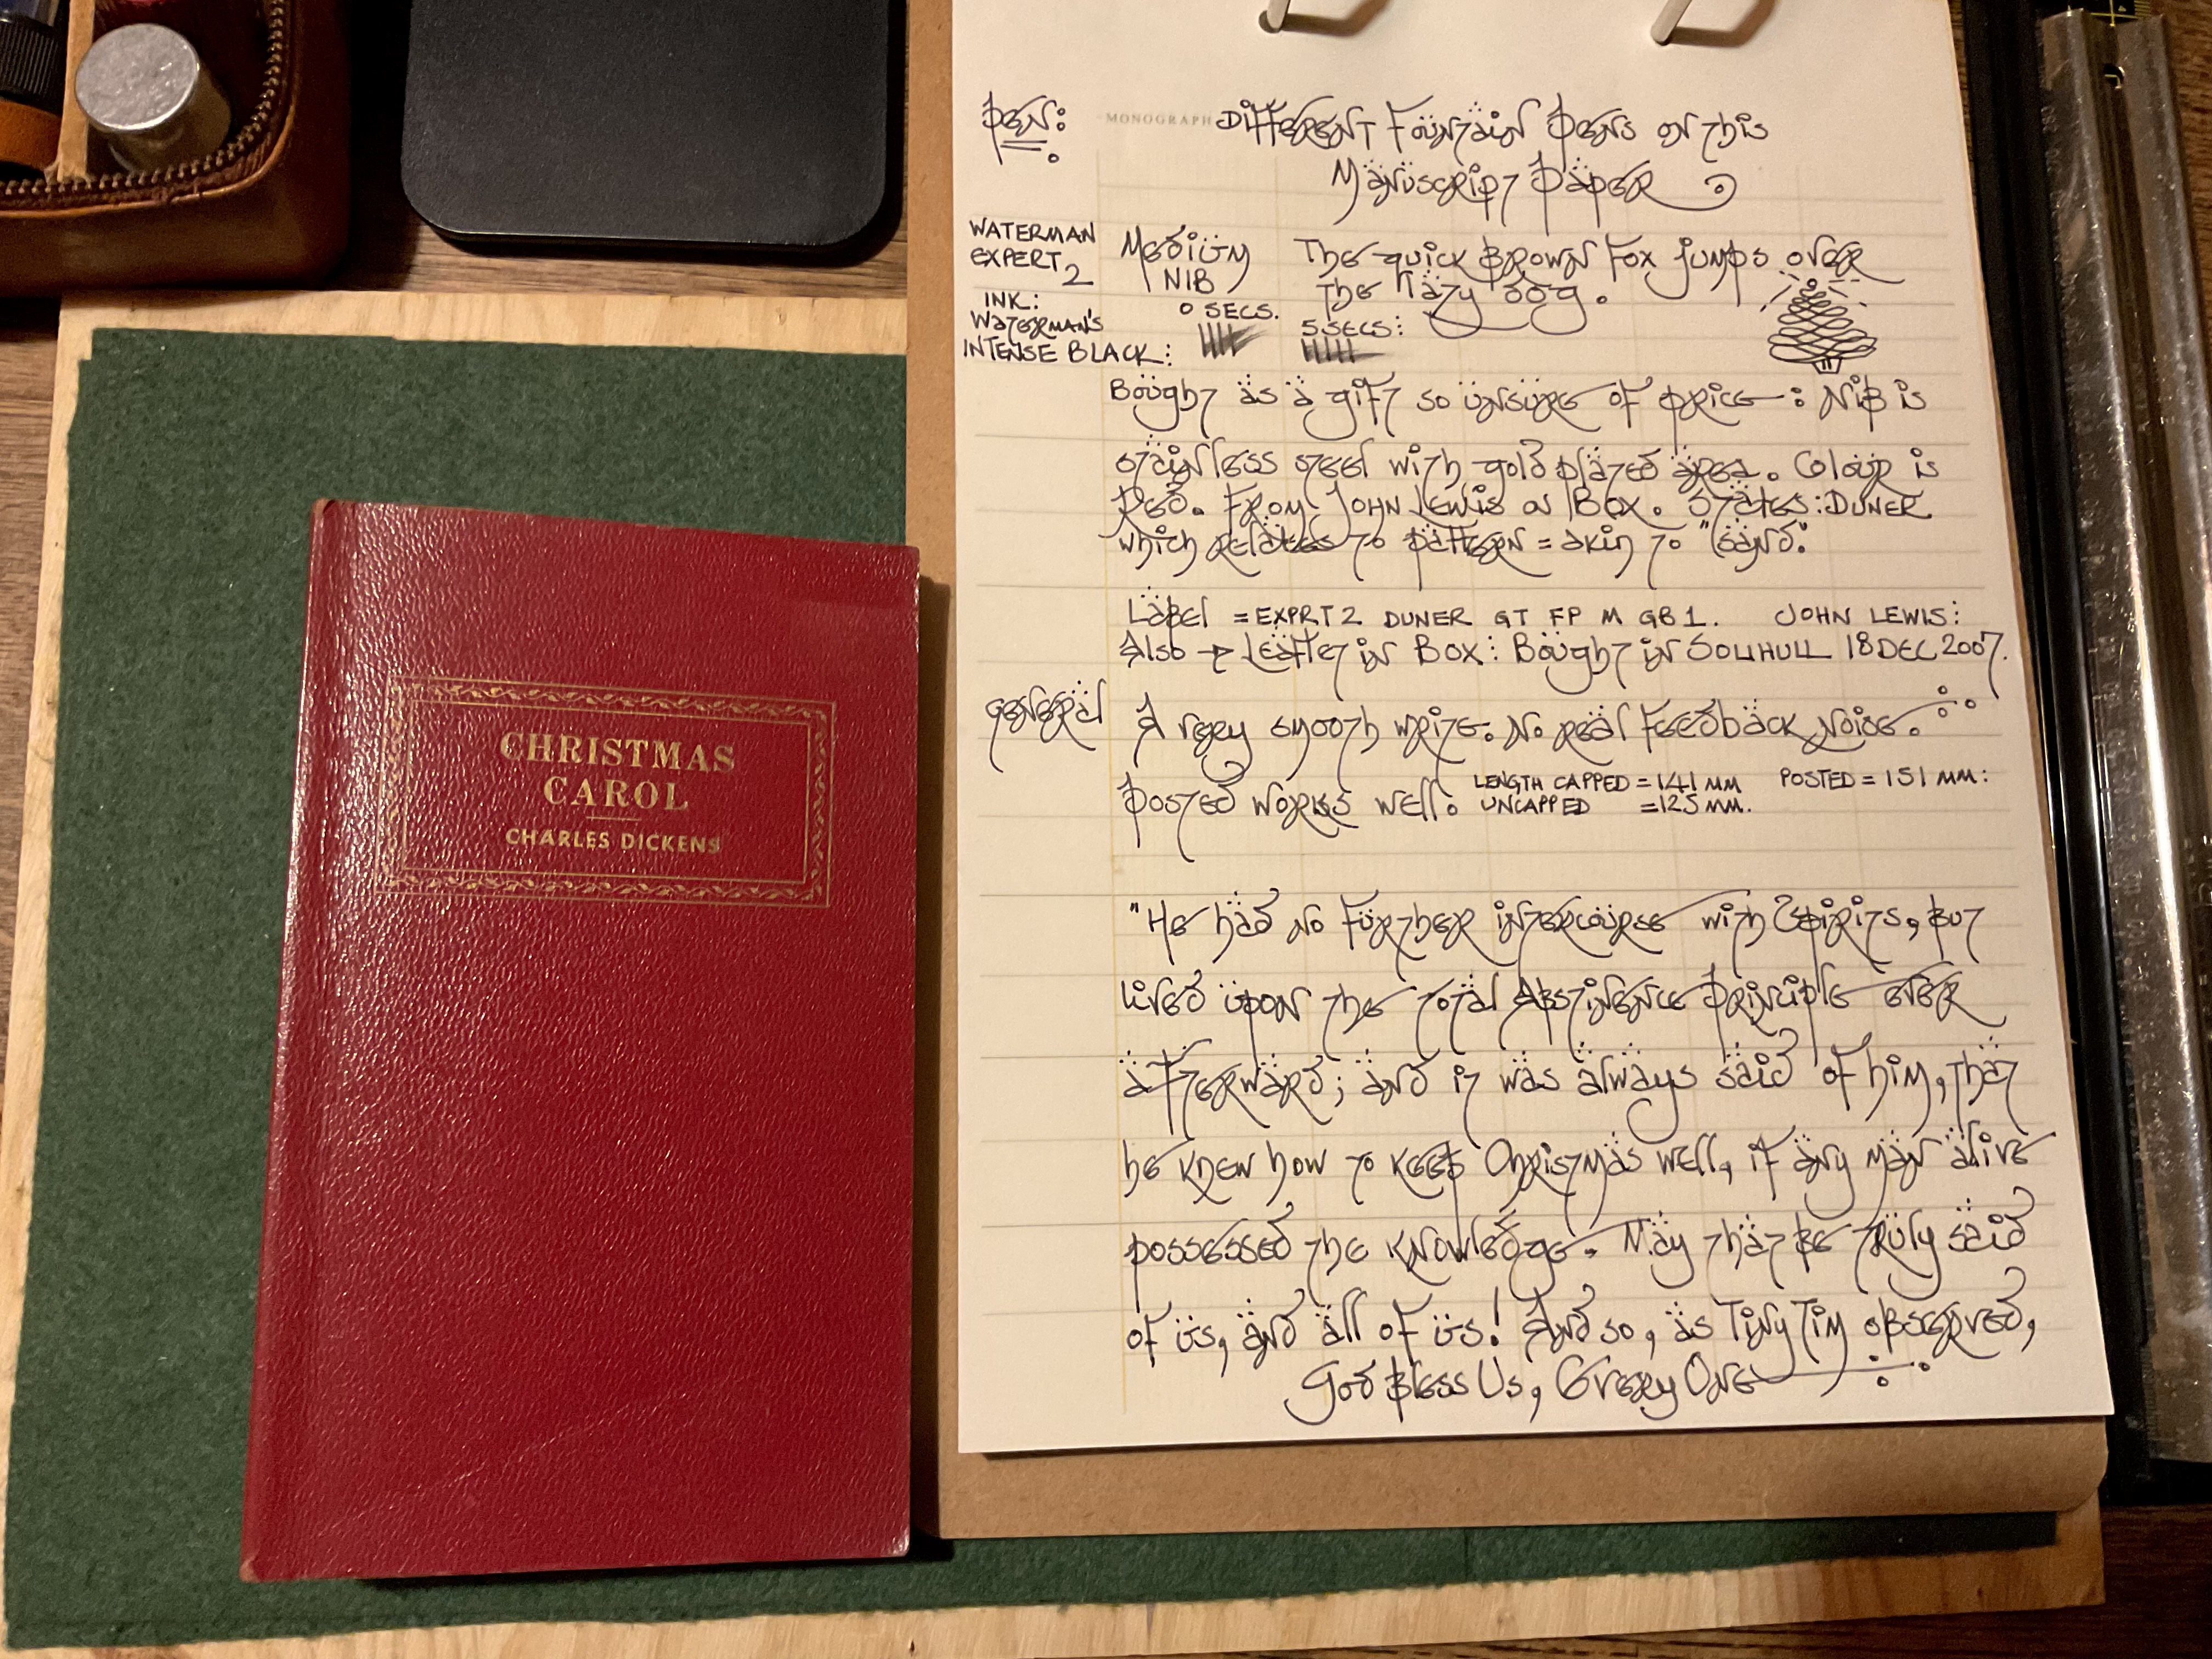 CHRISTMAS
CAROL
CHARLES DICKENS
Pen:
MONOGRAPH
Different Fountain Pens on this
Manuscript Paper
WATERMAN
EXPERT 2
INK:
WATERMAN'S
INTENSE BLACK:
Medium
NIB
The quick brown fox jumps over
the lazy dog.
0 SECS.
5 SECS:
Bought as a gift so unsure of price: Nib is
stainless steel with gold plated area. Colour is
Red. From John Lewis on Box. States: DUNER
which relates to pattern = akin to "sand".
Label = EXPRT 2 DUNER GT FP M GB1. JOHN LEWIS:
Also → Leaflet in Box: Bought in SOLIHULL 18 DEC 2007.
General
A very smooth write. No real feedback noise.
Posted works well. LENGTH CAPPED = 141 MM POSTED = 151 MM:
UNCAPPED = 125 MM.
"He had no further intercourse with Spirits, but
lived upon the Total Abstinence Principle ever
afterward; and it was always said of him, that
he knew how to keep Christmas well, if any man alive
possessed the knowledge. May that be truly said
of us, and all of us! And so, as Tiny Tim observed,
God Bless Us, Every One